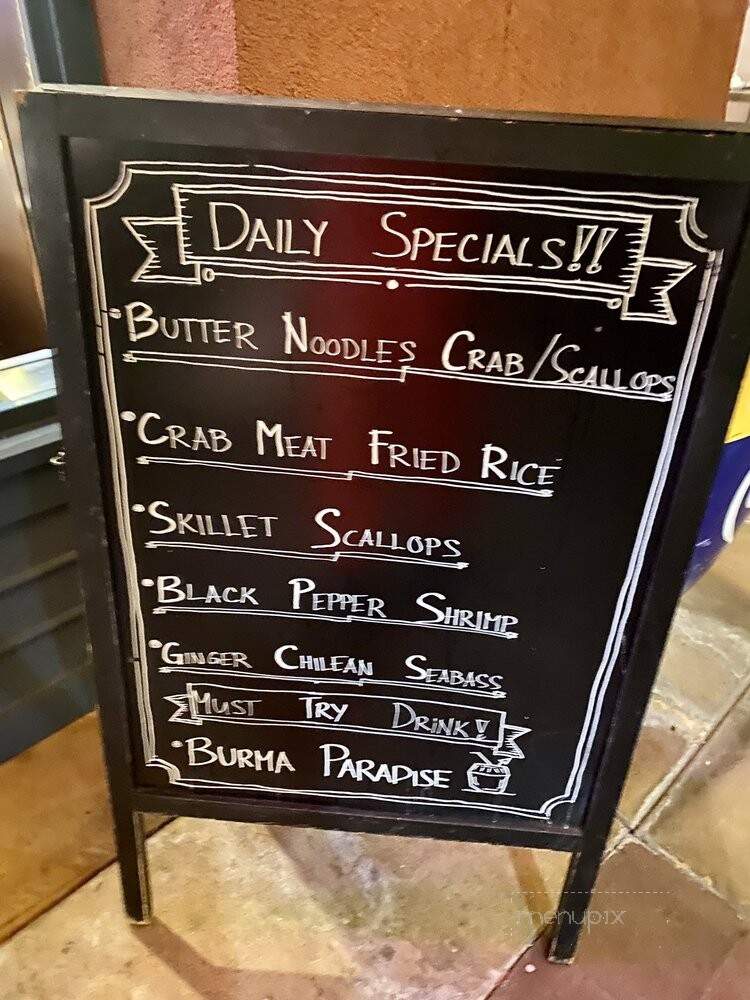 DAILY SPECIALS!!
•BUTTER NOODLES CRAB/SCALLOPS
•CRAB MEAT FRIED RICE
•SKILLET SCALLOPS
•BLACK PEPPER SHRIMP
•GINGER CHILEAN SEABASS
MUST TRY DRINK!
•BURMA PARADISE
menupix